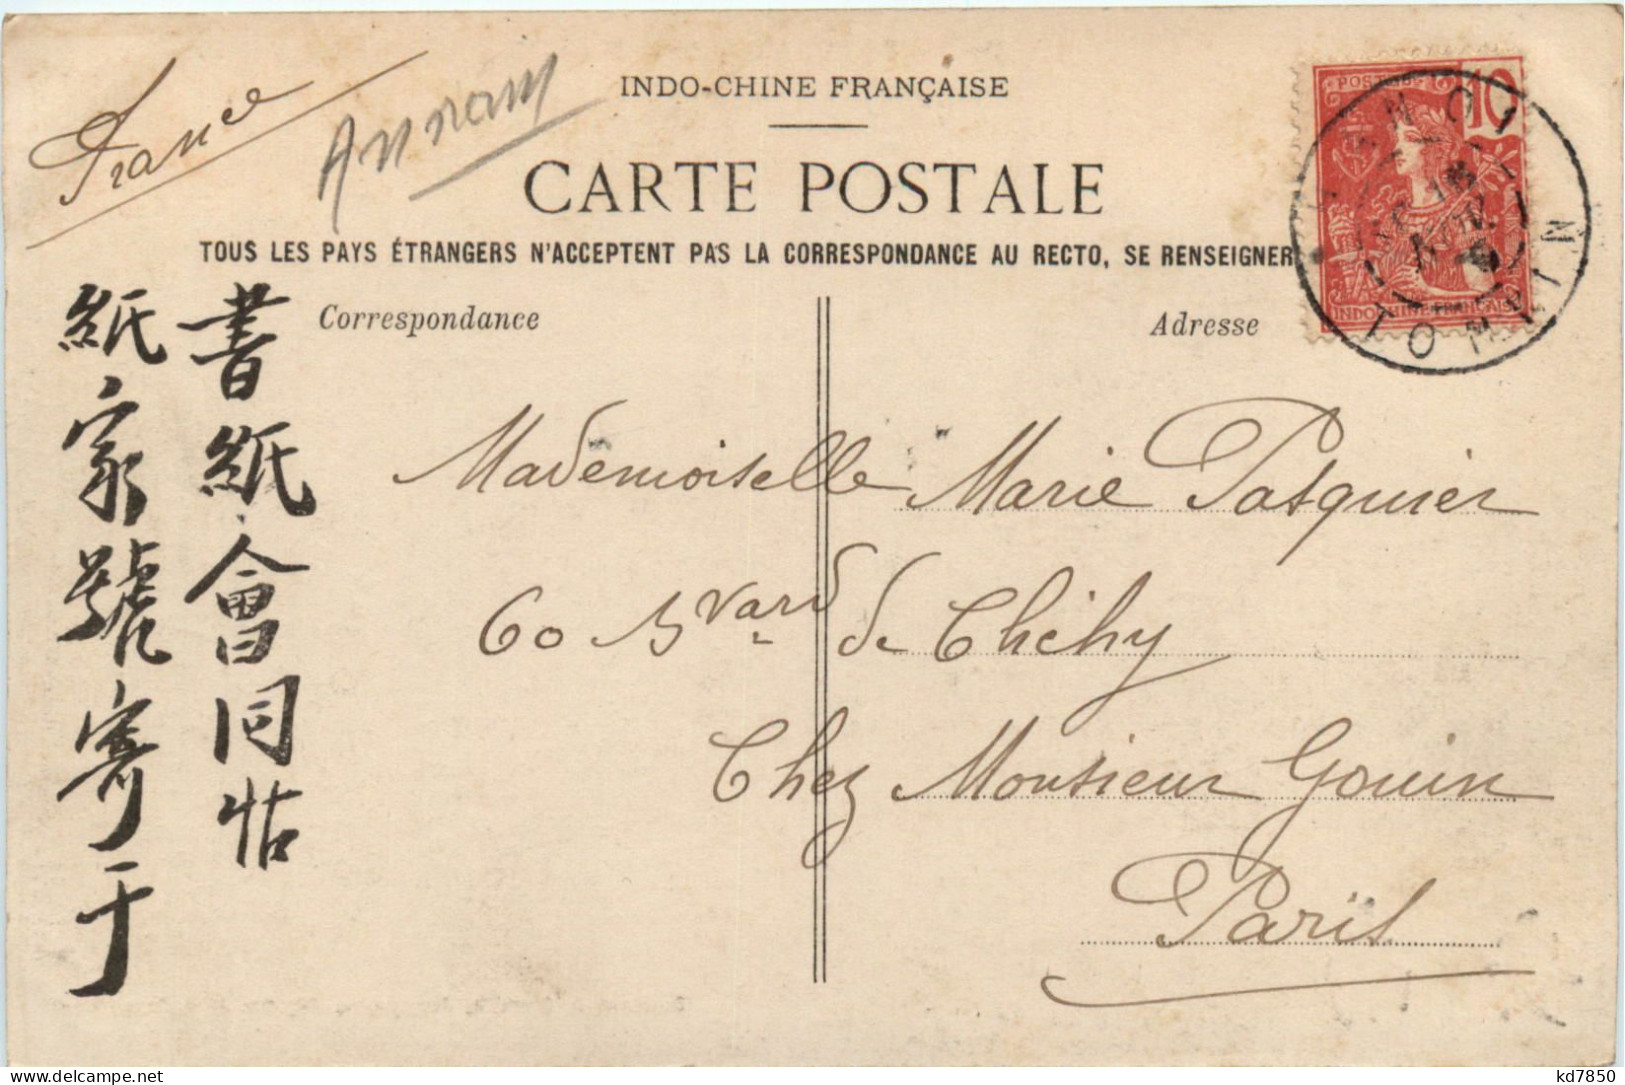 France
Annam
INDO-CHINE FRANÇAISE
CARTE POSTALE
TOUS LES PAYS ÉTRANGERS N'ACCEPTENT PAS LA CORRESPONDANCE AU RECTO, SE RENSEIGNER
POSTES 10
INDO-CHINE FRANÇAISE
TONKIN
Correspondance
Adresse
書紙會同帖
紙家號寄于
Mademoiselle Marie Pasquier
60 Bvard de Clichy
Chez Monsieur Gouin
Paris
kd7850